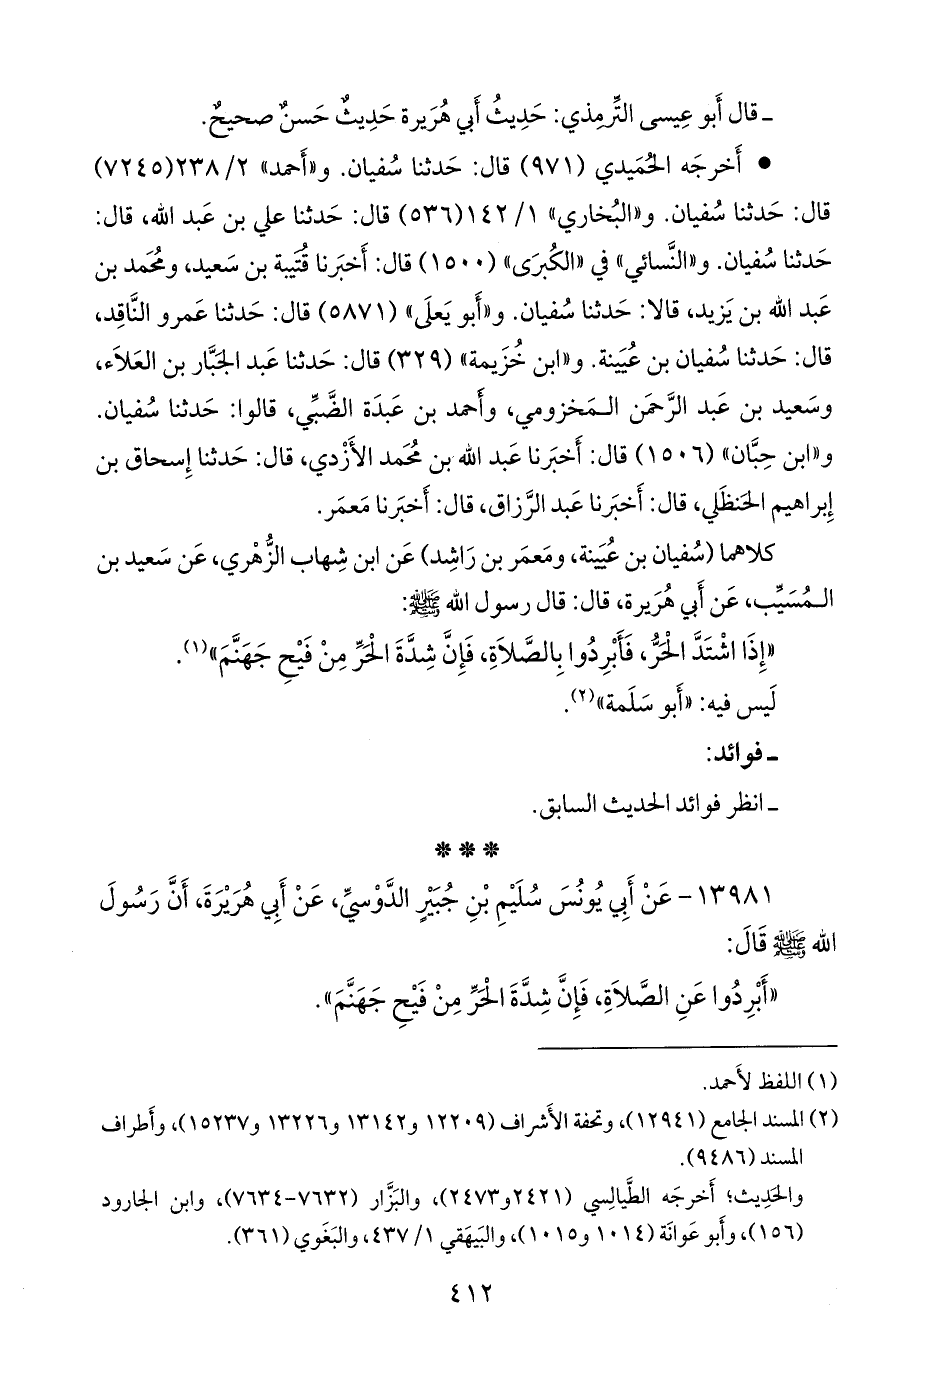 ـ قال أَبو عِيسى التِّرمِذي: حَدِيثُ أَبي هُرَيرة حَدِيثٌ حَسنٌ صحيحٌ.
• أَخرجَه الحُمَيدي (٩٧١) قال: حَدثنا سُفيان. و«أَحمد» ٢/ ٢٣٨(٧٢٤٥)
قال: حَدثنا سُفيان. و«البُخاري» ١/ ١٤٢(٥٣٦) قال: حَدثنا علي بن عَبد الله، قال:
حَدثنا سُفيان. و«النَّسائي» في «الكُبرَى» (١٥٠٠) قال: أَخبَرنا قُتَيبة بن سَعيد، ومُحَمد بن
عَبد الله بن يَزيد، قالا: حَدثنا سُفيان. و«أَبو يَعلَى» (٥٨٧١) قال: حَدثنا عَمرو النَّاقِد،
قال: حَدثنا سُفيان بن عُيَينة. و«ابن خُزَيمة» (٣٢٩) قال: حَدثنا عَبد الجَبَّار بن العَلَاء،
وسَعيد بن عَبد الرَّحمَن المَخزومي، وأَحمد بن عَبدَة الضَّبِّي، قالوا: حَدثنا سُفيان.
و«ابن حِبَّان» (١٥٠٦) قال: أَخبَرنا عَبد الله بن مُحَمد الأَزْدي، قال: حَدثنا إِسحاق بن
إِبراهيم الحَنظَلي، قال: أَخبَرنا عَبد الرَّزاق، قال: أَخبَرنا مَعمَر.
كلاهما (سُفيان بن عُيَينة، ومَعمَر بن رَاشِد) عَن ابن شِهاب الزُّهْري، عَن سَعيد بن
المُسَيِّب، عَن أَبي هُرَيرة، قال: قال رسول الله ﷺ:
«إِذَا اشْتَدَّ الْحَرُّ، فَأَبْرِدُوا بِالصَّلَاةِ، فَإِنَّ شِدَّةَ الْحَرِّ مِنْ فَيْحِ جَهَنَّمَ»(١).
لَيس فيه: «أَبو سَلَمة»(٢).
ـ فوائد:
ـ انظر فوائد الحديث السابق.
* * *
١٣٩٨١- عَنْ أَبِي يُونُسَ سُلَيْمِ بْنِ جُبَيْرٍ الدَّوْسِيِّ، عَنْ أَبِي هُرَيْرَةَ، أَنَّ رَسُولَ
الله ﷺ قَالَ:
«أَبْرِدُوا عَنِ الصَّلَاةِ، فَإِنَّ شِدَّةَ الْحَرِّ مِنْ فَيْحِ جَهَنَّمَ».
(١) اللفظ لأَحمد.
(٢) المسند الجامع (١٢٩٤١)، وتحفة الأَشراف (١٢٢٠٩ و١٣١٤٢ و١٣٢٢٦ و١٥٢٣٧)، وأَطراف
المسند (٩٤٨٦).
والحَدِيث؛ أَخرجَه الطَّيالِسي (٢٤٢١و٢٤٧٣)، والبَزَّار (٧٦٣٢-٧٦٣٤)، وابن الجارود
(١٥٦)، وأَبو عَوانَة (١٠١٤ و١٠١٥)، والبَيهَقي ١/ ٤٣٧، والبَغَوي (٣٦١).
٤١٢